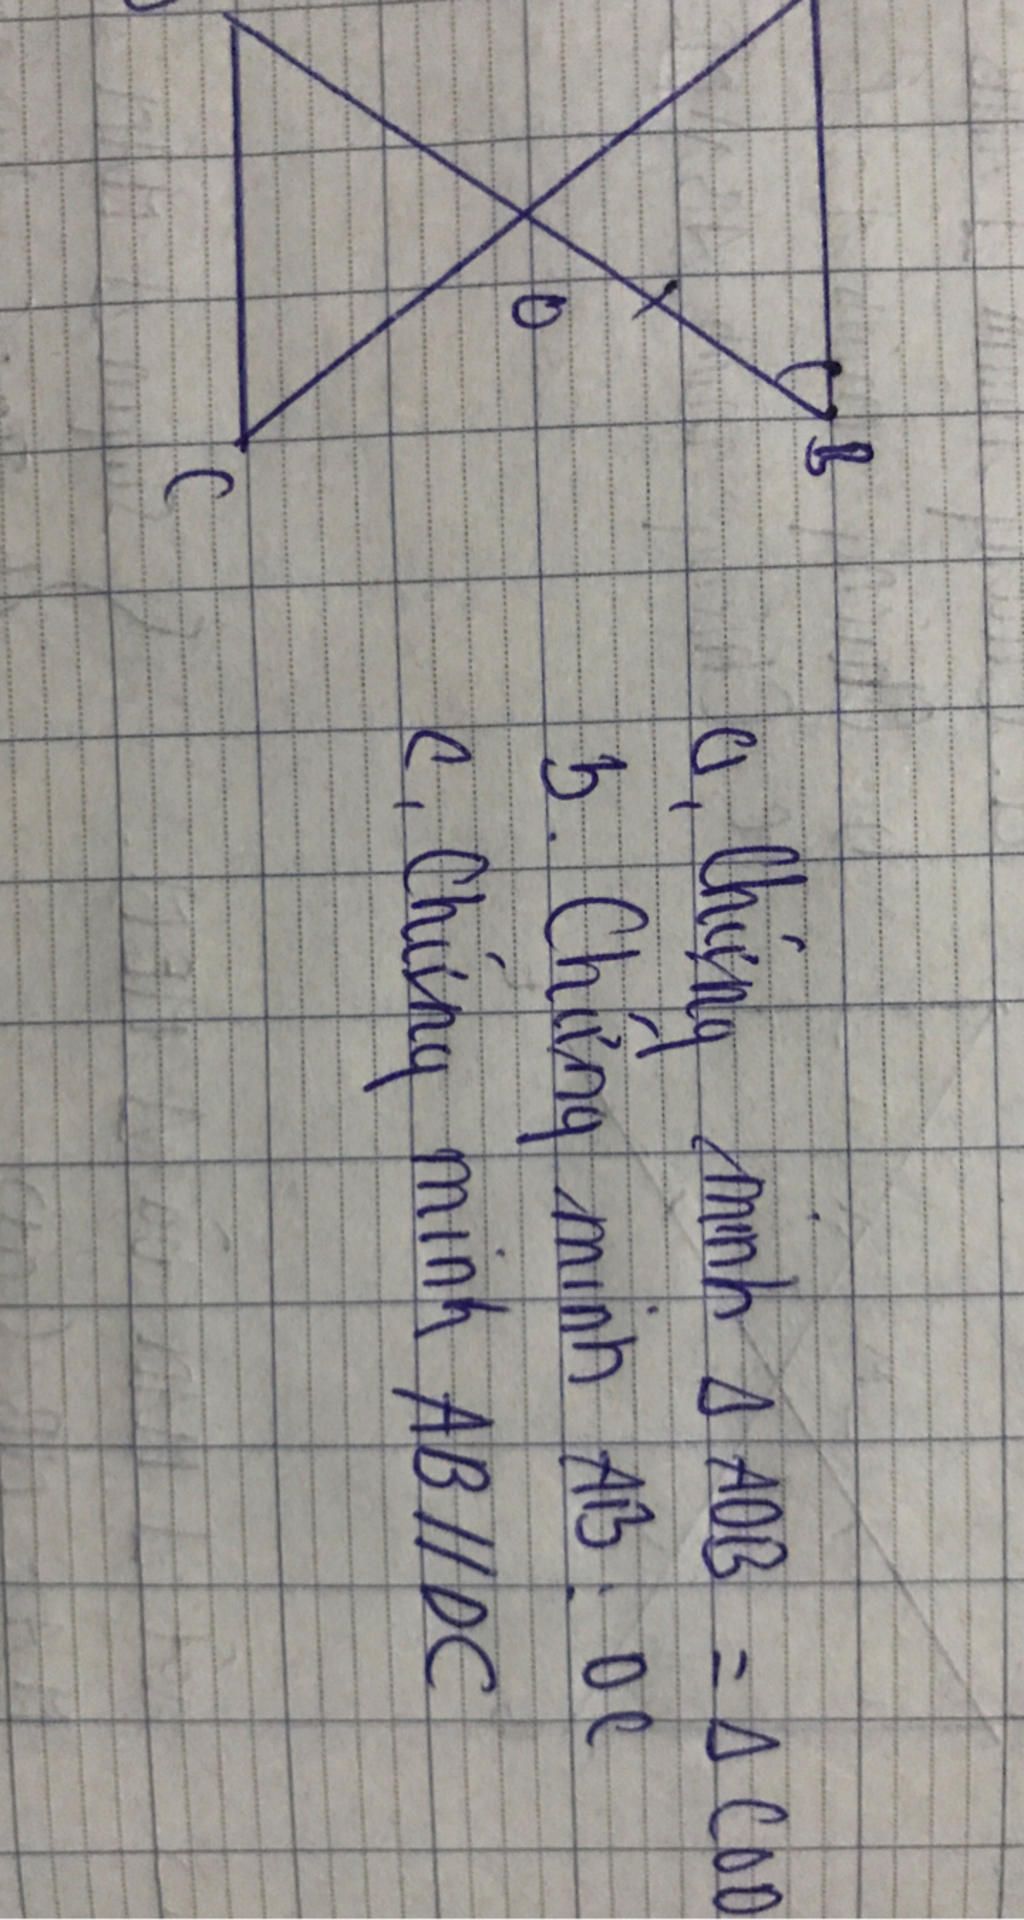 B
O
C
a, Chứng minh Δ AOB = Δ COD
b. Chứng minh AB. DC
c, Chứng minh AB // DC